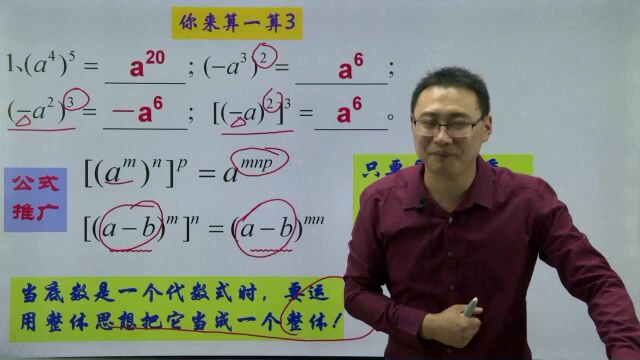 你来算一算3
1、(a⁴)⁵ = a²⁰ ; (−a³)² = a⁶ ;
(−a²)³ = −a⁶ ; [(−a)²]³ = a⁶ 。
公式
推广
[(aᵐ)ⁿ]ᵖ = aᵐⁿᵖ
[(a−b)ᵐ]ⁿ = (a−b)ᵐⁿ
只要
当底数是一个代数式时，要运
用整体思想把它当成一个整体！